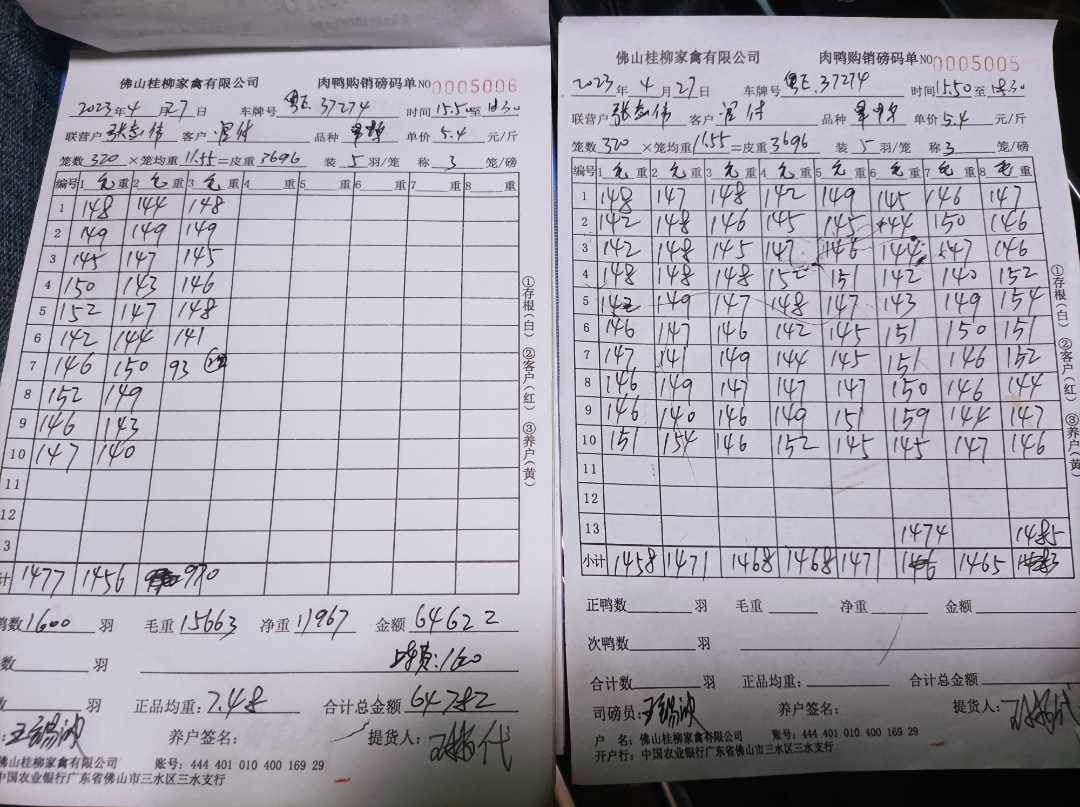 佛山桂柳家禽有限公司 肉鸭购销磅码单 NO 0005006
2023年4月27日 车牌号 粤E.37274 时间15.50至18.30
联营户 客户 品种 单价5.4元/斤
笼数320×笼均重11.55=皮重3696 装5羽/笼 称3笼/磅
编号 1毛重 2毛重 3毛重 4重 5重 6重 7重 8重
1 148 144 148
2 149 149 149
3 145 147 145
4 150 143 146
5 152 147 148
6 142 144 141
7 146 150 93
8 152 149
9 146 143
10 147 140
11
12
3
计 1477 1456 970
鸭数1600羽 毛重15663 净重11967 金额64622
数 羽 :160
数 羽 正品均重:7.48 合计总金额64782
: 养户签名: 提货人: 代
佛山桂柳家禽有限公司 账号:444 401 010 400 169 29
中国农业银行广东省佛山市三水区三水支行
①存根(白) ②客户(红) ③养户(黄)
佛山桂柳家禽有限公司 肉鸭购销磅码单 NO 0005005
2023年4月27日 车牌号 粤E.37274 时间15.50至18.30
联营户 客户 品种 单价5.4元/斤
笼数320×笼均重11.55=皮重3696 装5羽/笼 称3笼/磅
编号 1毛重 2毛重 3毛重 4毛重 5毛重 6毛重 7毛重 8毛重
1 148 147 148 142 149 145 146 147
2 142 148 146 145 145 144 150 146
3 142 148 145 147 146 144 147 146
4 148 148 148 152 151 142 140 152
5 149 147 148 147 143 149 154
6 146 147 146 142 145 151 150 151
7 147 141 149 144 145 151 146 152
8 146 149 147 147 147 150 146 144
9 146 140 146 149 151 159 144 147
10 151 154 146 152 145 145 147 146
11
12
13 1474 1485
小计 1458 1471 1468 1468 1471 1465
正鸭数 羽 毛重 净重 金额
次鸭数 羽
合计数 羽 正品均重: 合计总金额
司磅员: 养户签名: 提货人: 代
户 名:佛山桂柳家禽有限公司 账号:444 401 010 400 169 29
开户行:中国农业银行广东省佛山市三水区三水支行
①存根(白) ②客户(红) ③养户(黄)